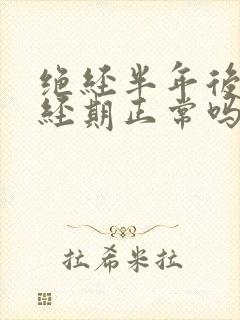 绝经半年後
经期正常吗
拉希米拉